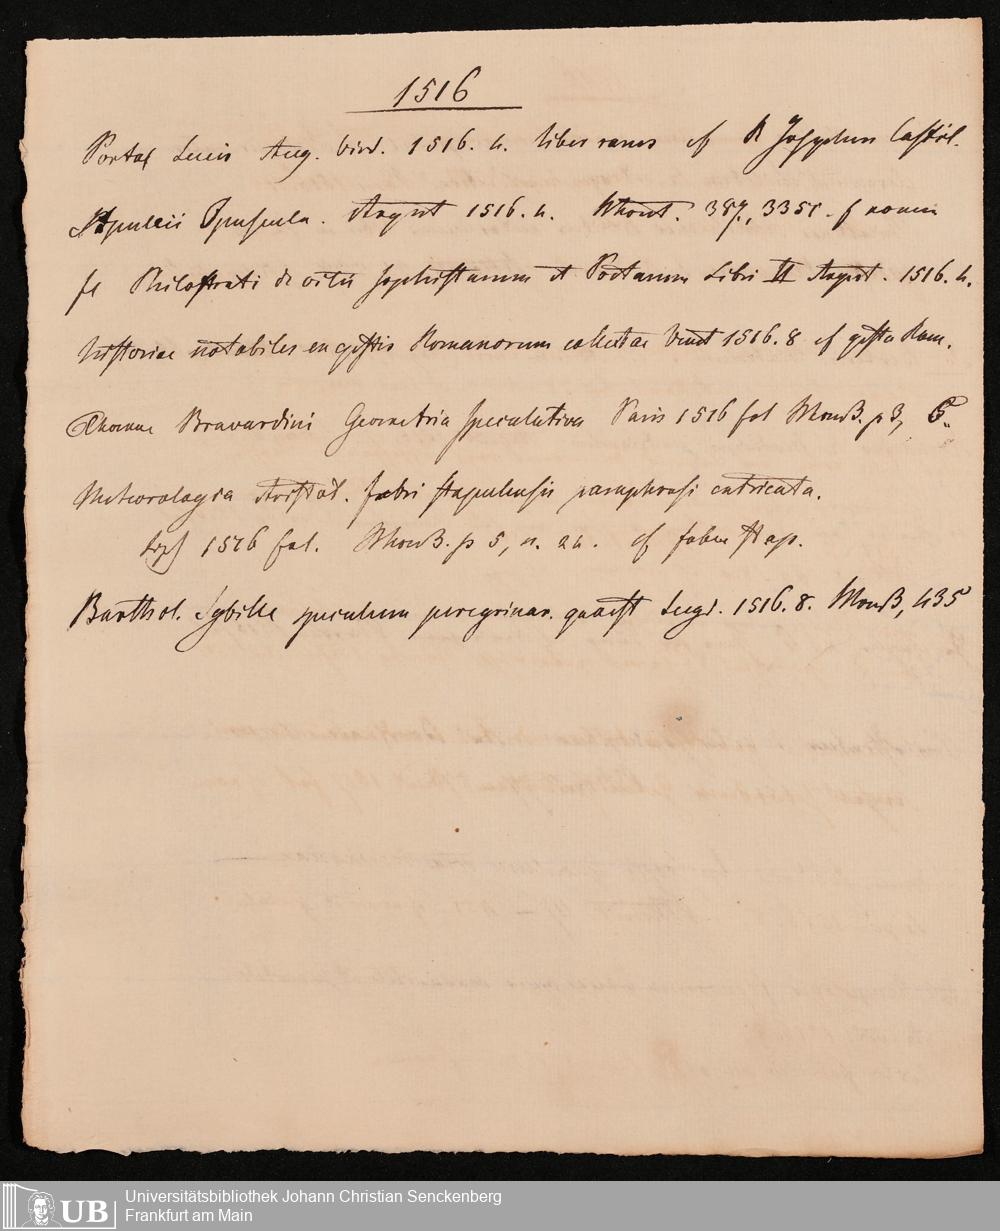 1516
Portae Lucis Aug. Vind. 1516. 4. liber rarus cf R Josephus Castil.
Apuleii Opuscula. Argent 1516. 4. 387, 3351. f
Philostrati de vitis sophistarum et Poetarum Libri II Argent. 1516. 4.
historiae notabiles en gestis Romanorum collectae Venet 1516. 8 cf gesta Rom.
Thomae Bravardini Geometria speculativa Paris 1516 fol Monß. p 3, 6.
Meteorologia Aristot. fabri stapulensis
1516 fol. Monß. p 5, n. 24. cf faber stap.
Barthol. Sybille speculum peregrinar. quaest Lugd. 1516. 8. Monß, 435
Universitätsbibliothek Johann Christian Senckenberg
Frankfurt am Main
UB